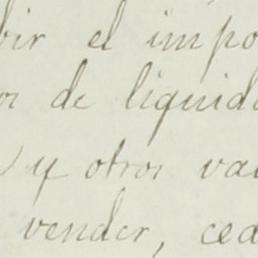 bir el impo
or de liquida
y otros val
vender, ced